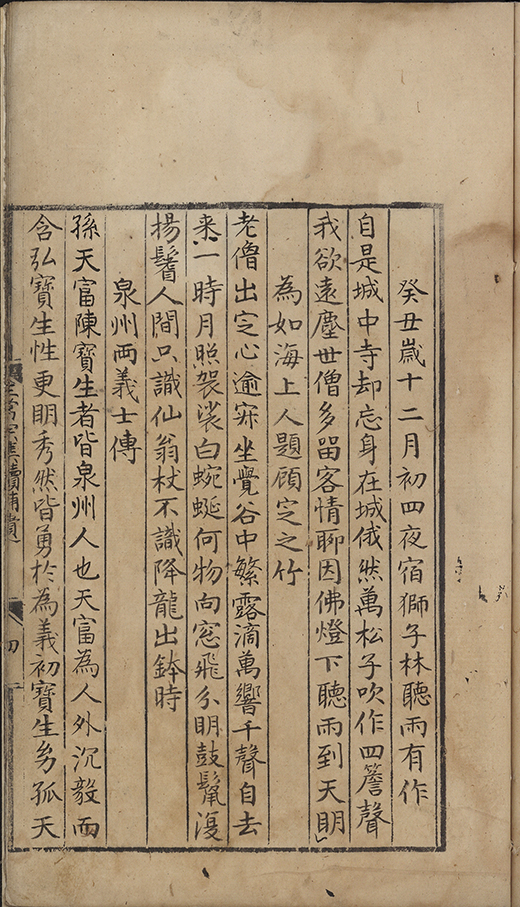 癸丑嵗十二月初四夜宿獅子林聽雨有作
自是城中寺却忘身在城俄然萬松子吹作四簷聲
我欲遠塵世僧多留客情聊因佛燈下聽雨到天明
為如海上人題顧定之竹
老僧出定心逾寂坐覺谷中繁露滴萬響千聲自去
来一時月照袈裟白蜿蜒何物向窓飛分明鼓鬛復
揚鬐人間只識仙翁杖不識降龍出鉢時
泉州兩義士傳
孫天富陳寶生者皆泉州人也天富為人外沉毅而
含弘寶生性更明秀然皆勇於為義初寶生幼孤天
四